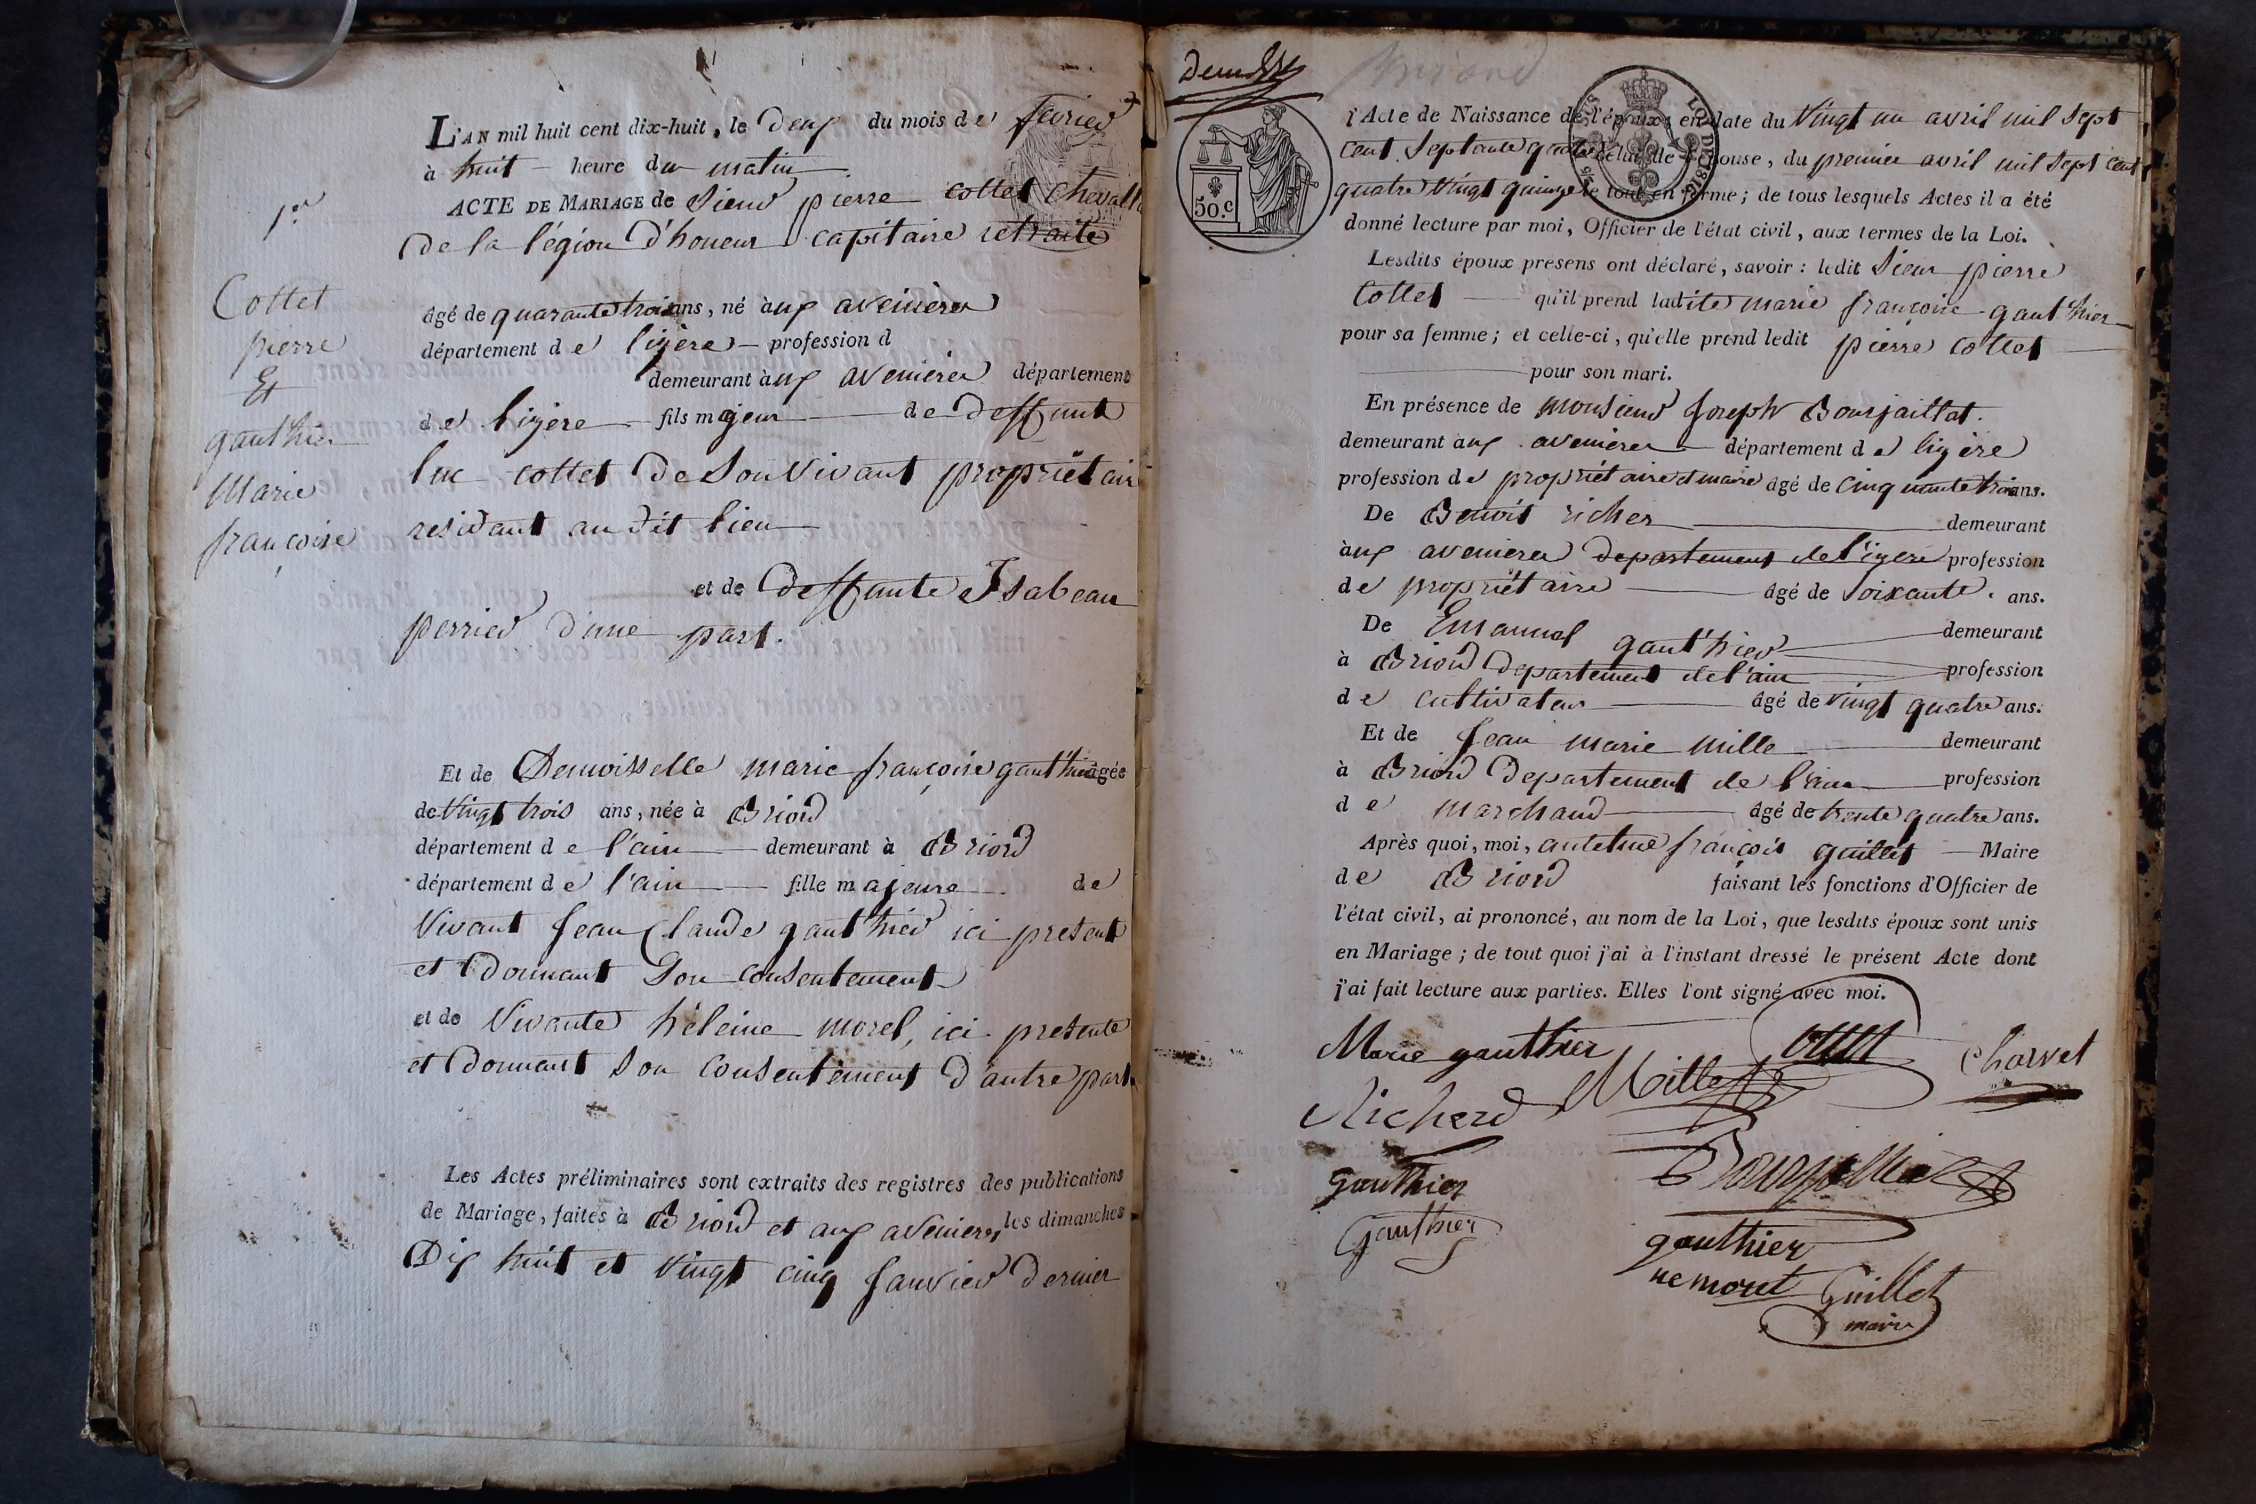 L'AN mil huit cent dix-huit, le deux du mois de fevrier
à huit heure du matin
1er
ACTE DE MARIAGE de Sieur pierre cottet chevallier
De la légion d'honeur capitaire retraité
Cottet
pierre
Et
gauthier
Marie
françoise
âgé de quarante trois ans, né àux aveinieres
département de lizère profession d
demeurant àux avenieres département
de lizère fils majeur de deffunt
luc cottet De Son Vivant propriétair
residant au dit lieu
et de deffunte Isabeau
perrier d'une part.
Et de Demoisselle marie françoise gauthier âgée
de vingt trois ans, née à Briord
département de l'ain demeurant à Briord
département de l'ain fille majeure de
Vivant Jean Claude gauthier ici present
et Donnant Son consentement
et de Vivante héleine morel, ici presente
et Donnant Son Consentement d'autre part
Les Actes préliminaires sont extraits des registres des publications
de Mariage, faites à Briord et aux avenieres, les dimanches
Dix huit et vingt cinq Janvier dernier
50.c
l'Acte de Naissance de l'époux, en date du vingt un avril mil sept
cent septante quatre celui de l'épouse, du premier avril mil sept cent
quatre vingt quinze le tout en forme; de tous lesquels Actes il a été
donné lecture par moi, Officier de l'état civil, aux termes de la Loi.
Lesdits époux presens ont déclaré, savoir: ledit Sieur pierre
Cottet qu'il prend ladite marie françoise gauthier
pour sa femme; et celle-ci, qu'elle prend ledit pierre cottet
pour son mari.
En présence de monsieur Joseph Bourjaillat.
demeurant aux avenieres département de lizère
profession de propriétaire et maire âgé de cinquante trois ans.
De Benoit richer demeurant
àux avenieres departement de l'izere profession
de propriétaire âgé de soixante. ans.
De Emanuel gauthier demeurant
à Briord departement de l'ain profession
de cultivateur âgé de vingt quatre ans.
Et de Jean marie mille demeurant
à Briord departement de l'ain profession
de marchand âgé de trente quatre ans.
Après quoi, moi, antelme françois guillet Maire
de Briord faisant les fonctions d'Officier de
l'état civil, ai prononcé, au nom de la Loi, que lesdits époux sont unis
en Mariage; de tout quoi j'ai à l'instant dressé le présent Acte dont
j'ai fait lecture aux parties. Elles l'ont signé avec moi.
Marie gauthier Cottet Charvet
Richerd Mille
gauthier Bourjaillat
Gauthier gauthier
ne morel Guillet
maire